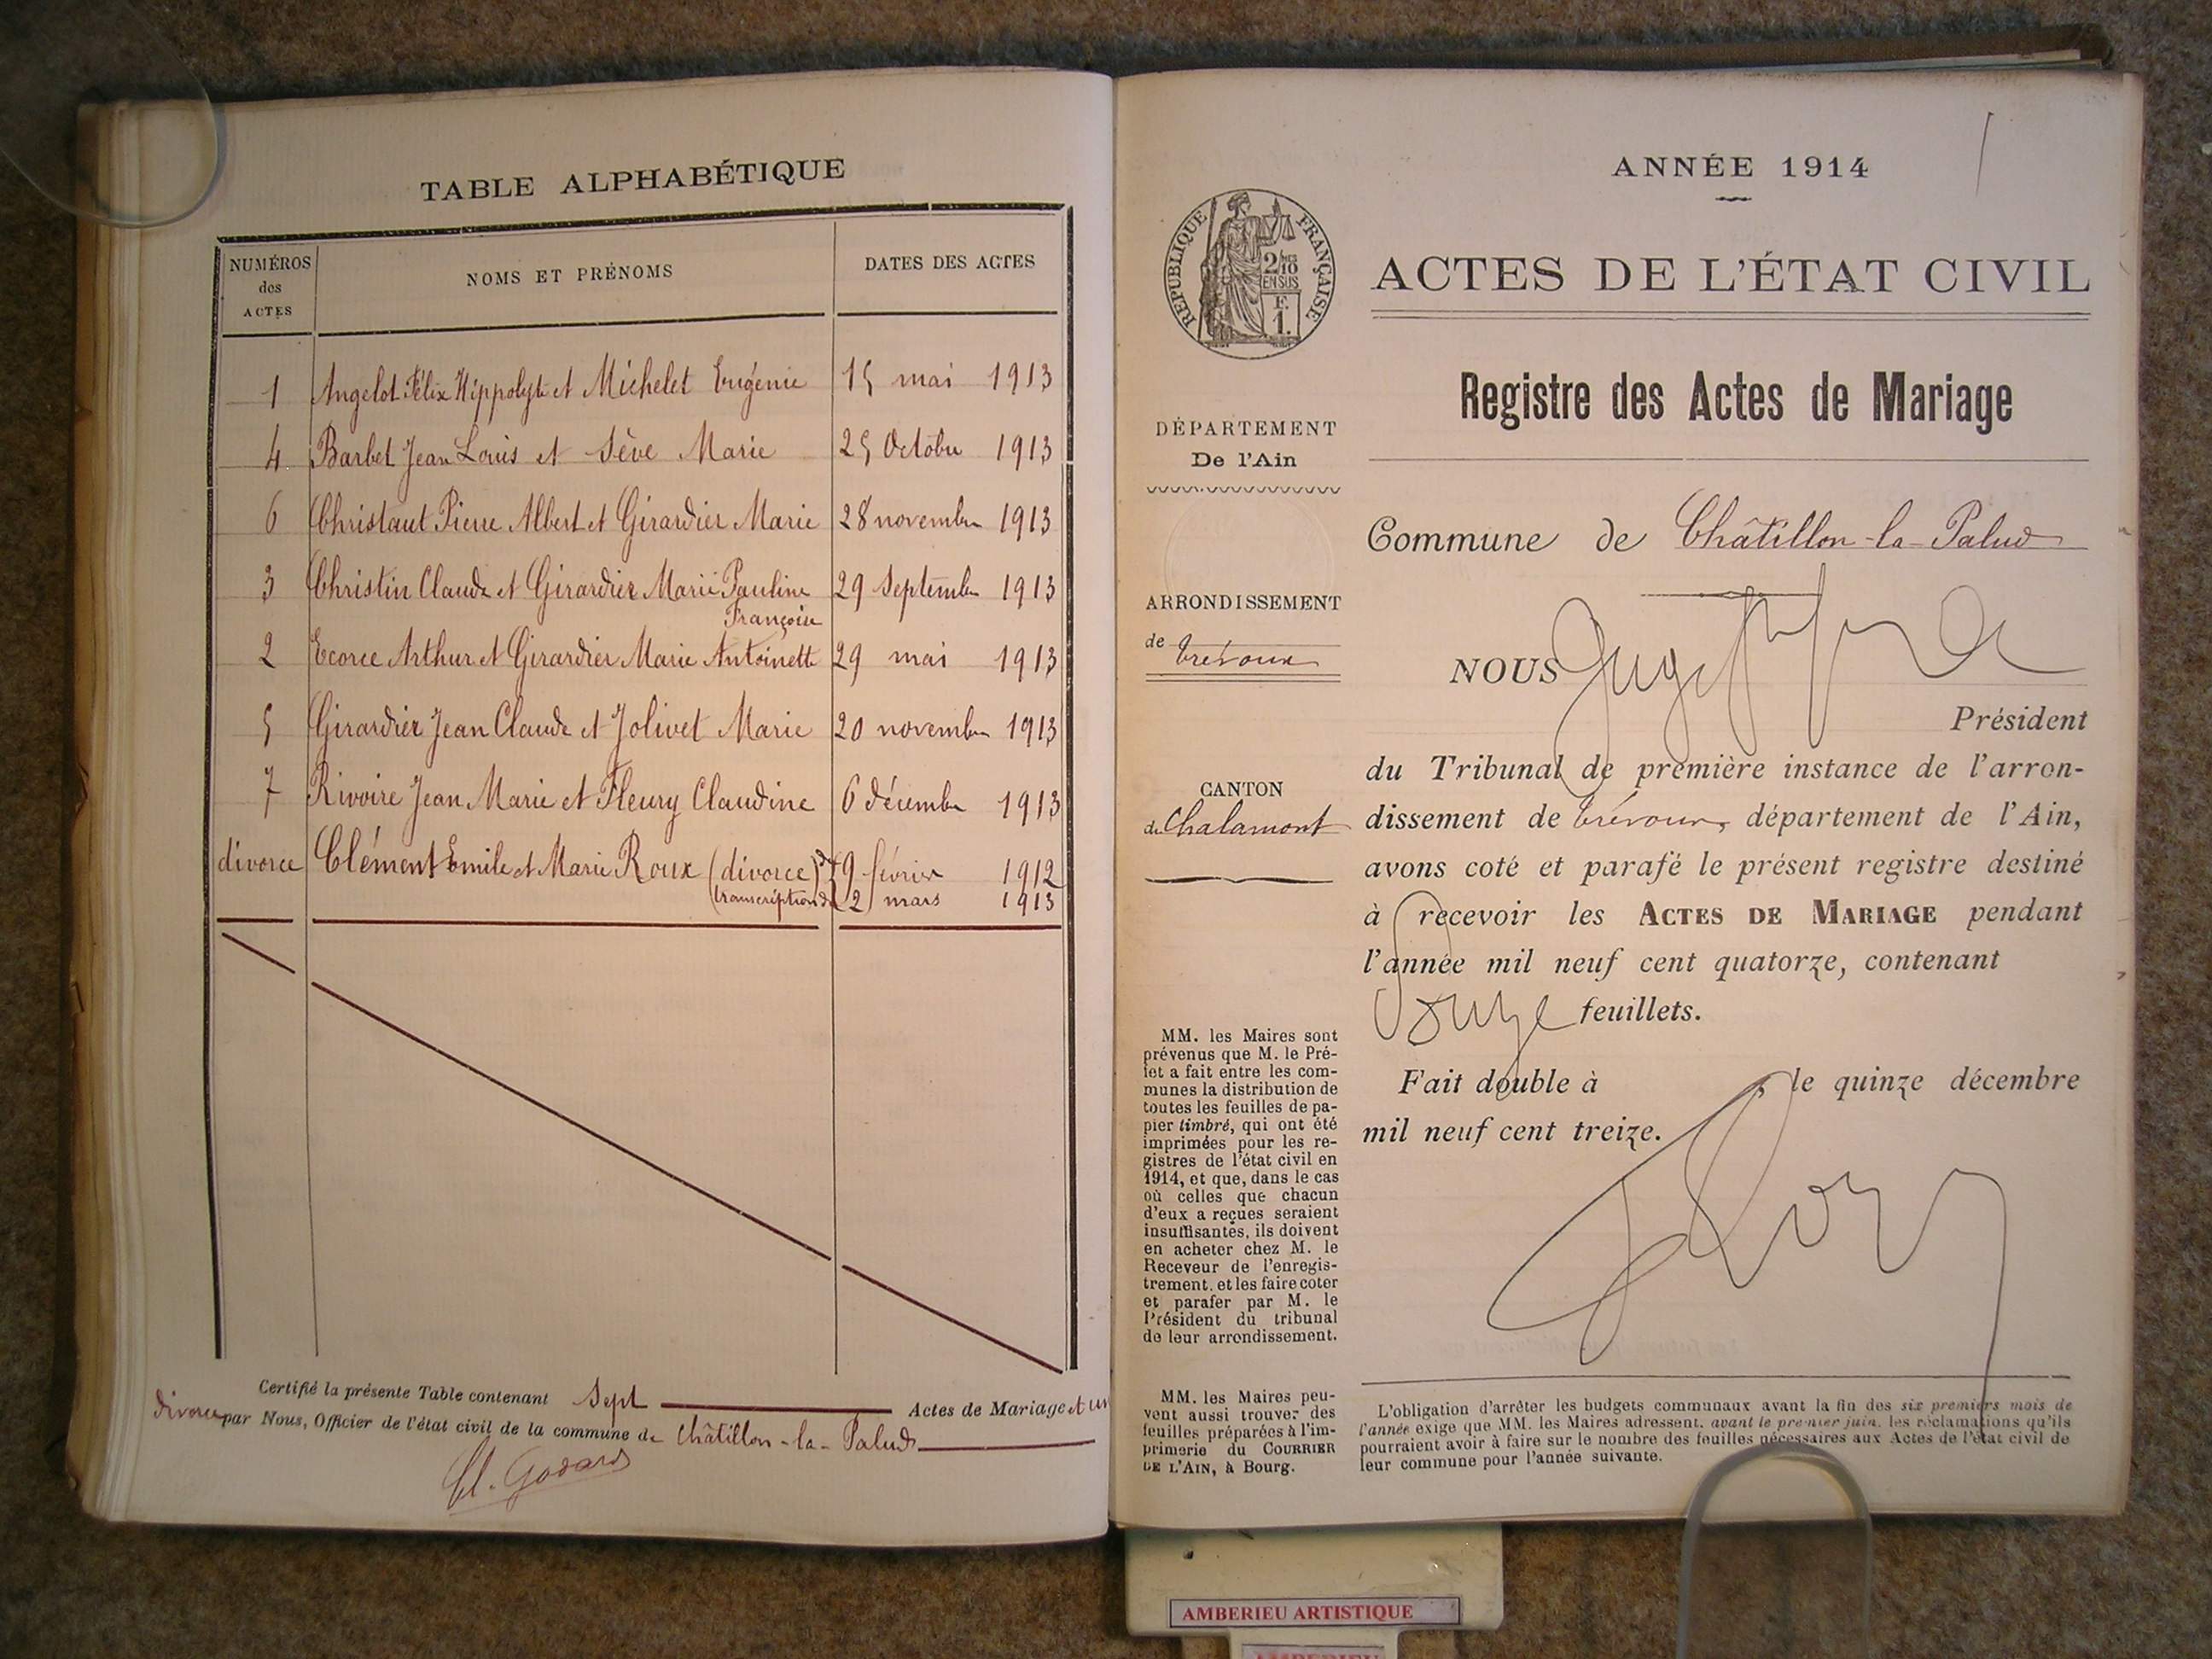 TABLE ALPHABÉTIQUE
NUMÉROS
des
ACTES
NOMS ET PRÉNOMS
DATES DES ACTES
1 Angelot Félix Hippolyte et Michelet Eugénie 15 mai 1913
4 Barbet Jean Louis et Sève Marie 25 Octobre 1913
6 Christaut Pierre Albert et Girardier Marie 28 novembre 1913
3 Christin Claude et Girardier Marie Pauline 29 Septembre 1913
Françoise
2 Ecorce Arthur et Girardier Marie Antoinette 29 mai 1913
5 Girardier Jean Claude et Jolivet Marie 20 novembre 1913
7 Rivoire Jean Marie et Fleury Claudine 6 décembre 1913
divorce Clément Emile et Marie Roux (divorce) 9 février 1912
(transcription du 2 mars 1913
Certifié la présente Table contenant Sept Actes de Mariage et un
divorce par Nous, Officier de l'état civil de la commune de Châtillon-la-Palud
Cl. Godard
ANNÉE 1914
RÉPUBLIQUE FRANÇAISE
2/10
EN SUS
F.
1.
ACTES DE L'ÉTAT CIVIL
Registre des Actes de Mariage
DÉPARTEMENT
De l'Ain
Commune de Châtillon-la-Palud
ARRONDISSEMENT
de Trévoux
CANTON
de Chalamont
NOUS
Président
du Tribunal de première instance de l'arron-
dissement de Trévoux, département de l'Ain,
avons coté et parafé le présent registre destiné
à recevoir les ACTES DE MARIAGE pendant
l'année mil neuf cent quatorze, contenant
douze feuillets.
Fait double à , le quinze décembre
mil neuf cent treize.
MM. les Maires sont
prévenus que M. le Pré-
fet a fait entre les com-
munes la distribution de
toutes les feuilles de pa-
pier timbré, qui ont été
imprimées pour les re-
gistres de l'état civil en
1914, et que, dans le cas
où celles que chacun
d'eux a reçues seraient
insuffisantes, ils doivent
en acheter chez M. le
Receveur de l'enregis-
trement, et les faire coter
et parafer par M. le
Président du tribunal
de leur arrondissement.
MM. les Maires peu-
vent aussi trouver des
feuilles préparées à l'im-
primerie du COURRIER
DE L'AIN, à Bourg.
L'obligation d'arrêter les budgets communaux avant la fin des six premiers mois de
l'année exige que MM. les Maires adressent, avant le premier juin, les réclamations qu'ils
pourraient avoir à faire sur le nombre des feuilles nécessaires aux Actes de l'état civil de
leur commune pour l'année suivante.
AMBERIEU ARTISTIQUE
AMBERIEU